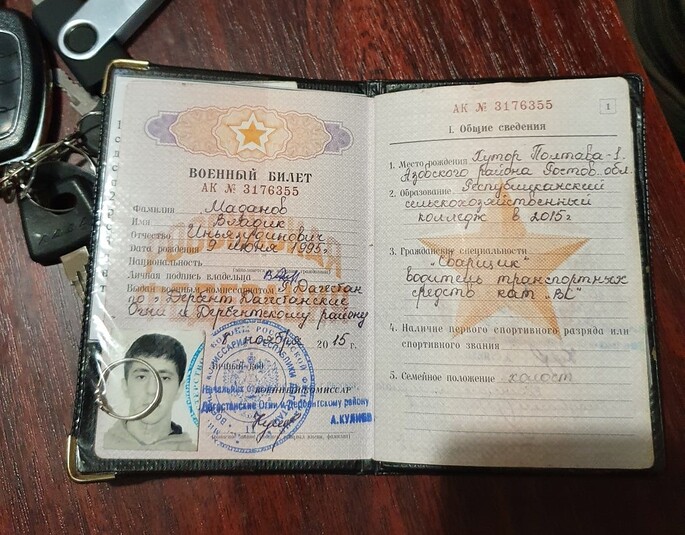 ВОЕННЫЙ БИЛЕТ
АК № 3176355
Фамилия Маданов
Имя Владик
Отчество
Дата рождения 9 июня 1995г.
Национальность
Личная подпись владельца
Выдан военным комиссариатом Р Дагестан
по г. Дербент, Дагестанские
Огни и Дербентскому району
8 ноября 2015 г.
Личный код
Начальник ВОЕННЫЙ КОМИССАР
Дагестанские Огни и Дербентскому району
А.КУЛИЕВ
АК № 3176355
1
I. Общие сведения
1. Место рождения Хутор Полтава-1.
Азовского района Ростов. обл.
2. Образование Республиканский
сельскохозяйственный
колледж в 2015г
3. Гражданские специальности
"Сварщик"
водитель транспортных
средств кат "ВС"
4. Наличие первого спортивного разряда или
спортивного звания
5. Семейное положение холост